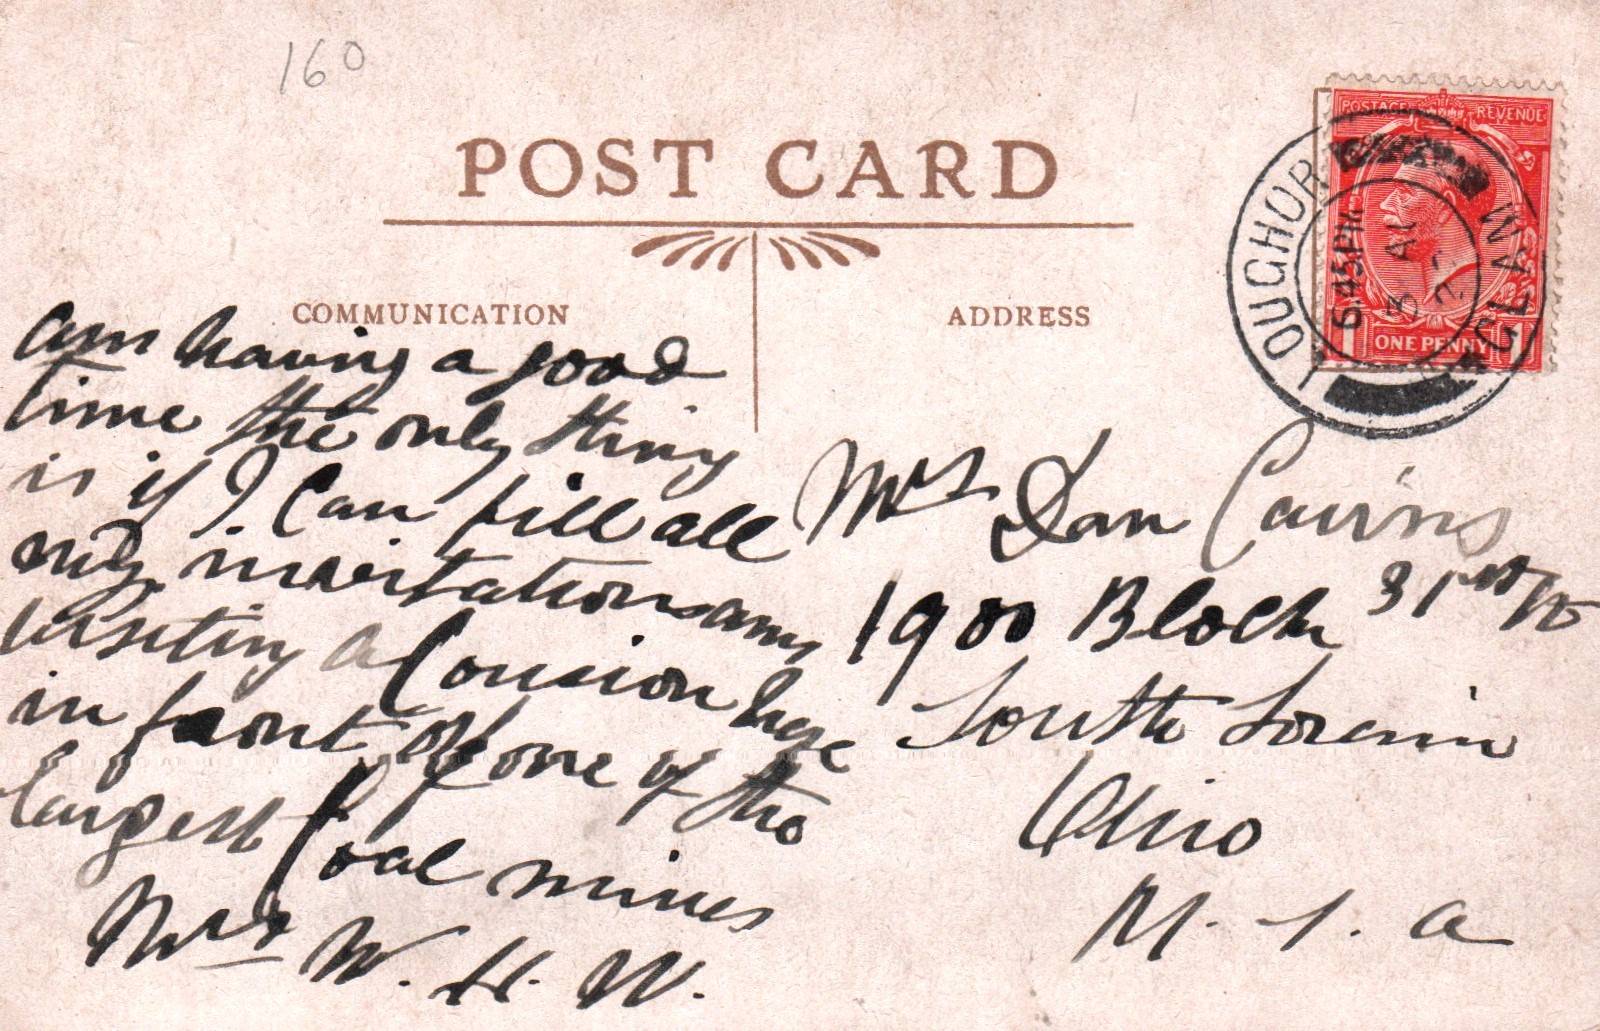 160
POST CARD
COMMUNICATION
ADDRESS
POSTAGE REVENUE
1 ONE PENNY 1
LOUGHOR
5.45 PM
3 AU
am having a good
time the only thing
is if I can fill all
my invitations am
visiting a Cousion here
in front of one of the
largest Coal mines
Mrs W. H. W.
Mrs Dan Cairns
1900 Block 31st
South Lorain
Ohio
U. S. A